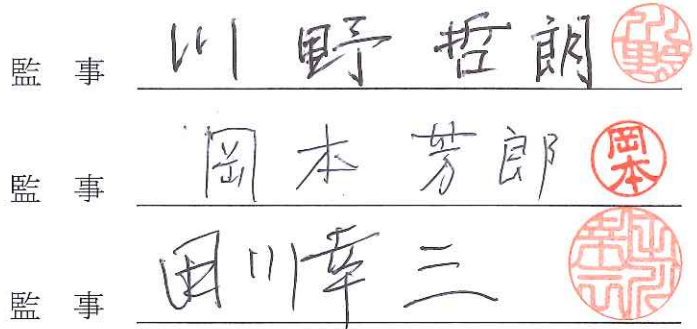 監 事 川 野 哲 朗
監 事 岡 本 芳 郎 岡本
監 事 田 川 幸 三